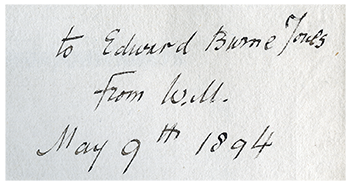 to Edward Burne Jones
From W.M.
May 9th 1894